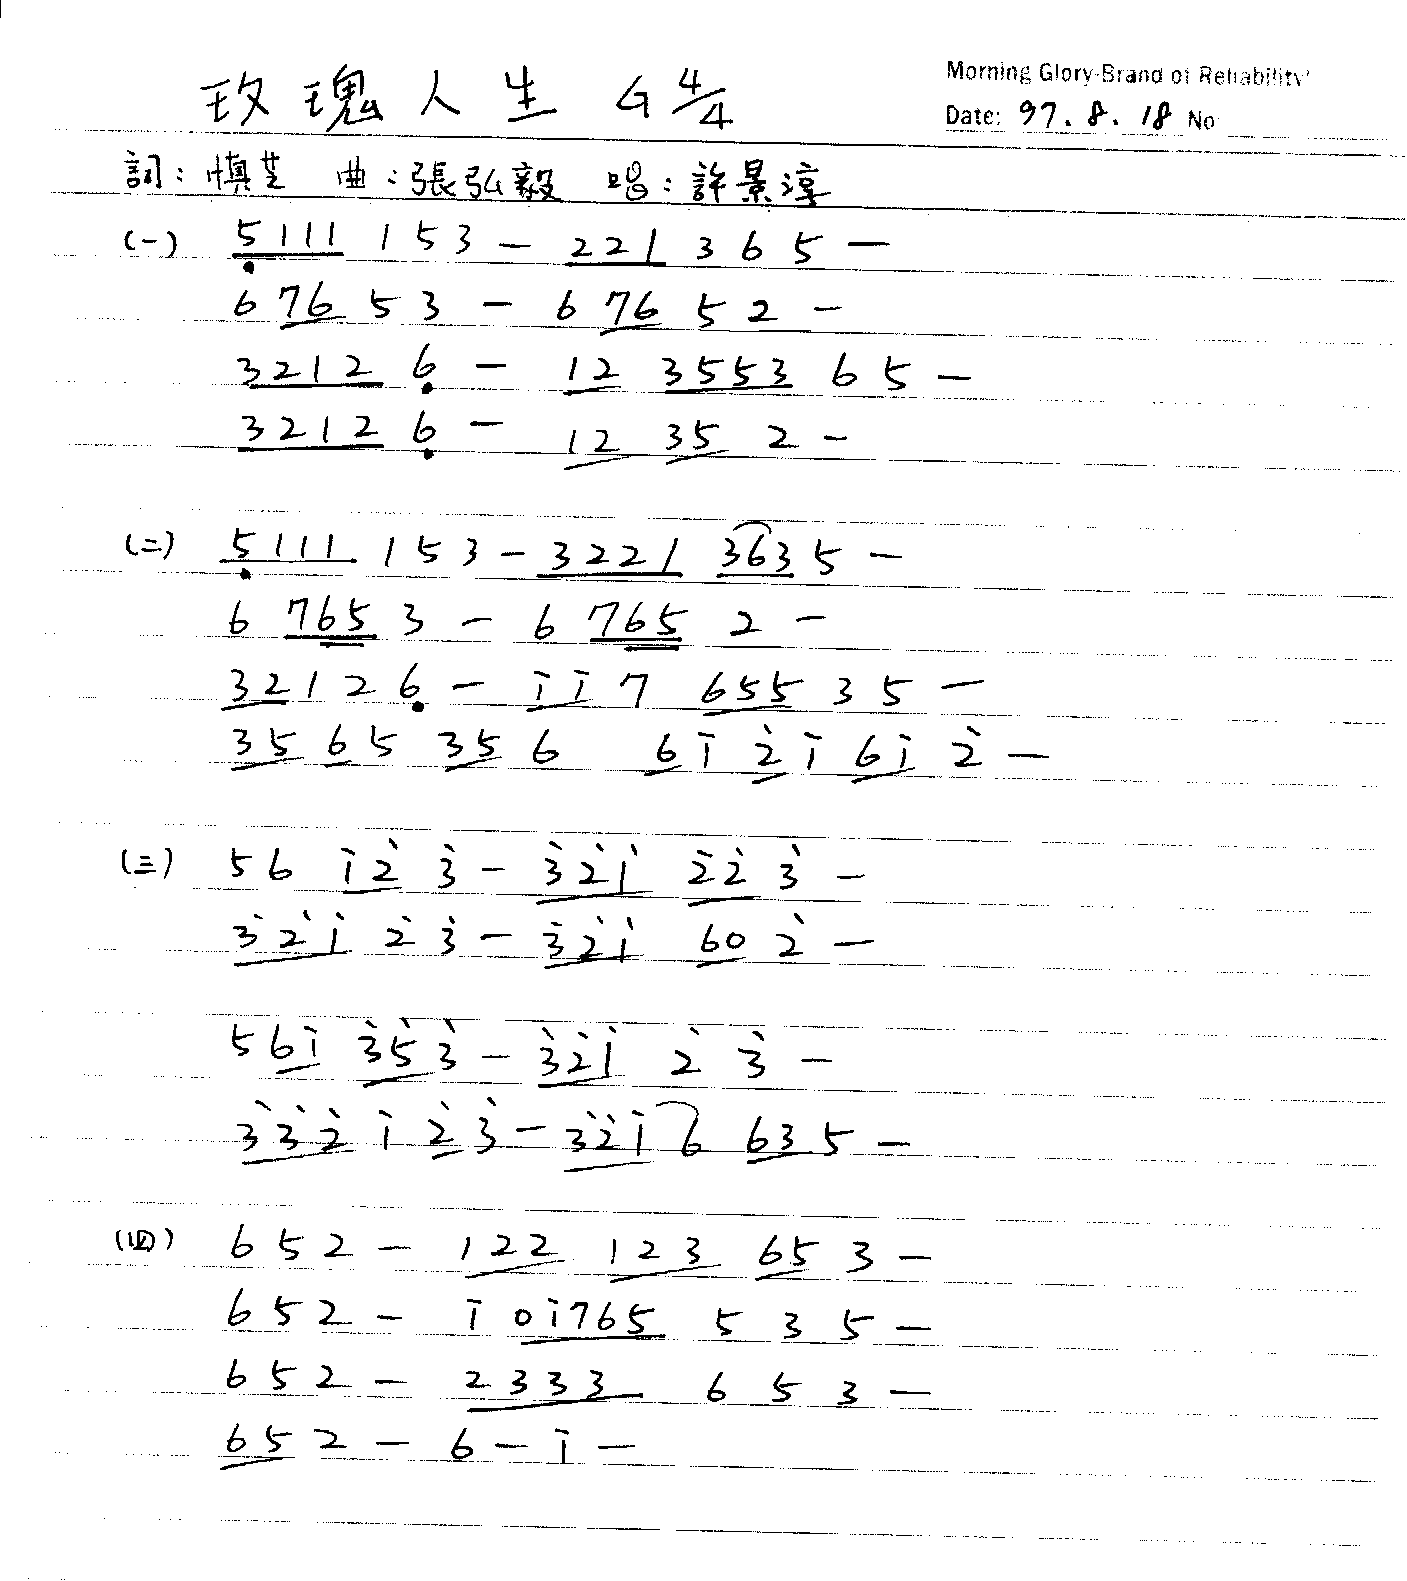 Morning Glory-Brand of Reliability
玫瑰人生 G 4/4
Date: 97.8.18 No
詞：慎芝 曲：張弘毅 唱：許景淳
(一) 5̣111 153 – 221 365 –
6 76 53 – 6 76 52 –
3212 6̣ – 12 3553 65 –
3212 6̣ – 12 35 2 –
(二) 5̣111 153 – 3221 3635 –
6 765 3 – 6 765 2 –
32126̣ – i̇i̇7 655 35 –
35 65 35 6 6i̇ 2̇i̇ 6i̇ 2̇ –
(三) 56 i̇2̇ 3̇ – 3̇2̇i̇ 2̇2̇ 3̇ –
3̇2̇i̇ 2̇3̇ – 3̇2̇i̇ 60 2̇ –
56i̇ 3̇5̇3̇ – 3̇2̇i̇ 2̇ 3̇ –
3̇3̇2̇ i̇ 2̇3̇ – 3̇2̇i̇6 635 –
(四) 652 – 122 123 65 3 –
652 – i̇ 0i̇765 5 3 5 –
652 – 2333 653 –
652 – 6 – i̇ –